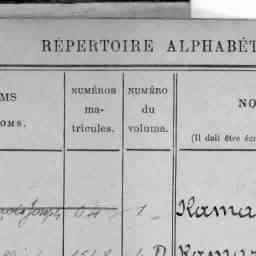 RÉPERTOIRE ALPHABÉT
MS
OMS.
NUMÉROS
ma-
tricules.
NUMÉRO
du
volume.
NO
(Il doit être éc
Joseph
1
Kama